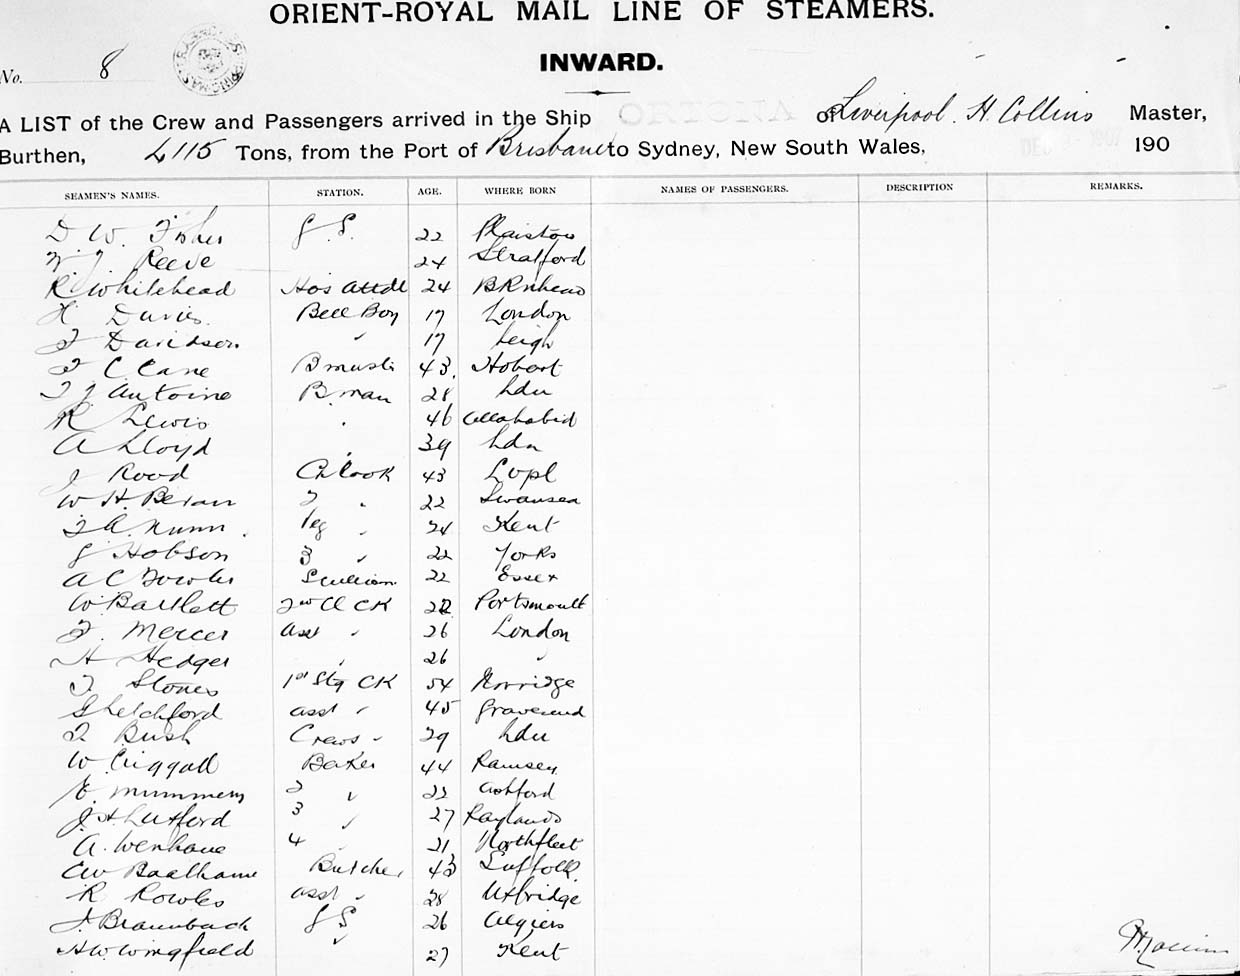 ORIENT-ROYAL MAIL LINE OF STEAMERS.
No. 8
INWARD.
A LIST of the Crew and Passengers arrived in the Ship ORTONA of Liverpool. H. Collins Master,
Burthen, 4115 Tons, from the Port of Brisbane to Sydney, New South Wales, DEC 1907 190
SEAMEN'S NAMES. STATION. AGE. WHERE BORN NAMES OF PASSENGERS. DESCRIPTION REMARKS.
D. W. Fisher G.S. 22 Plaistow
Reeve 24 Stratford
R Whitehead Hos Attdt 24 BRnhead
H Davies. Bell Boy 17 London
F Davidson " 17 Leigh
F C Cane B mustr 43. Hobart
F J Antoine B. man 28 Ldn
R Lewis " 46 Allahabid
A Lloyd " 39 Ldn
J Rood Ch Cook 43 Lvpl
W H. Bevan 2 " 22 Swansea
F A. Nunn. Veg " 24 Kent
G Hobson 3 " 22 Yorks
A C Fowler Scullion 22 Essex
W Bartlett 2nd Cl CK 22 Portsmouth
F. Mercer asst " 26 London
H Hedger " 26 "
F Stones 1st Stg CK 54 Norridge
S Letchford asst " 45 Gravesend
F Bush Crews " 29 Ldn
W Criggall Baker 44 Ramsey
E. Mummery 2 " 22 Ashford
J. H. Lutford 3 " 27
A. Wenham 4 " 21 Northfleet
CW Baalham Butcher 43 Suffolk
R Rowles asst " 28 Uxbridge
J. Braunback G S 26 Algiers
H.W. Wingfield " 27 Kent
H Collins